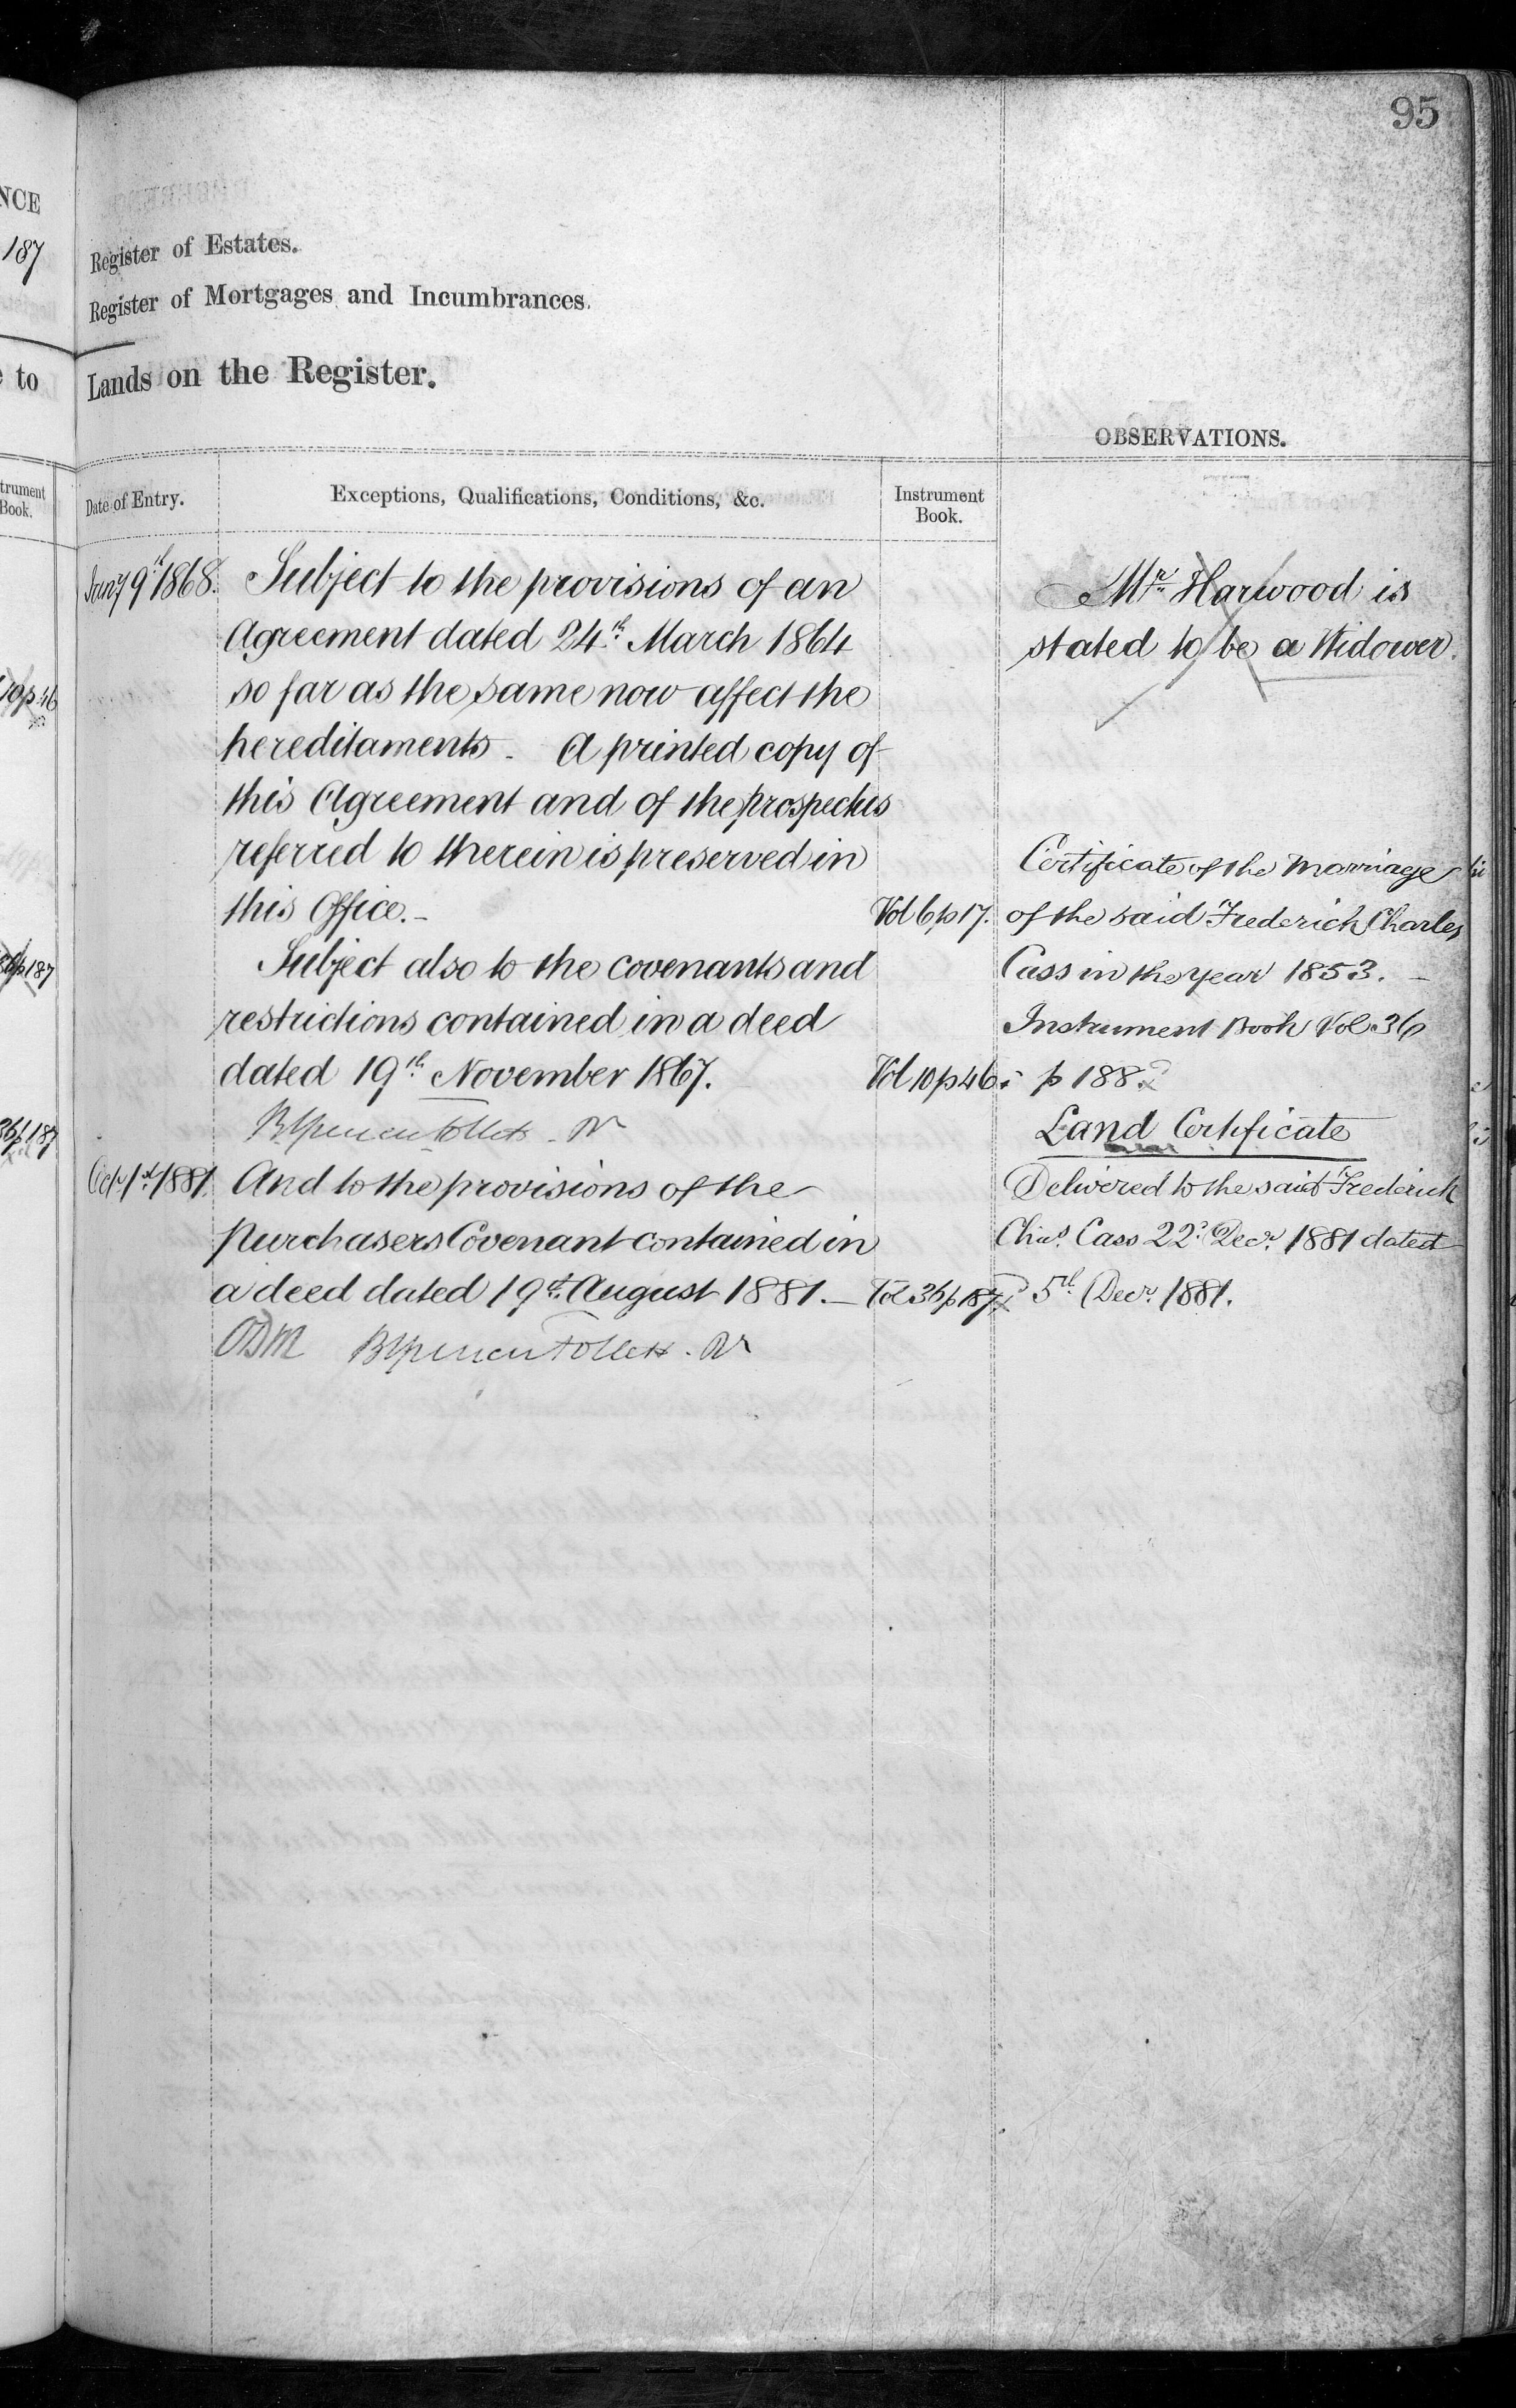 95
NCE
187
Register of Estates.
Register of Mortgages and Incumbrances.
e to
Lands on the Register.
OBSERVATIONS.
trument
Book.
Date of Entry.
Exceptions, Qualifications, Conditions, &c.
Instrument
Book.
Jany 9th 1868.
Subject to the provisions of an
Agreement dated 24th March 1864
so far as the same now affect the
hereditaments. A printed copy of
this Agreement and of the prospectus
referred to therein is preserved in
this Office.- Vol 6 p 17.
Subject also to the covenants and
restrictions contained in a deed
dated 19th November 1867. Vol 10 p 46
10 p 46
36 p 187
36 p 187
Octr 1st 1881. And to the provisions of the
purchasers Covenant contained in
a deed dated 19th August 1881.- Vol 36 p 187
Mr Harwood is
stated to be a Widower.
Certificate of the Marriage
of the said Frederick Charles
Cass in the year 1853. -
Instrument Book Vol 36
p 188
Land Certificate
Delivered to the said Frederick
Chas. Cass 22d Decr. 1881 dated
5th Decr. 1881.